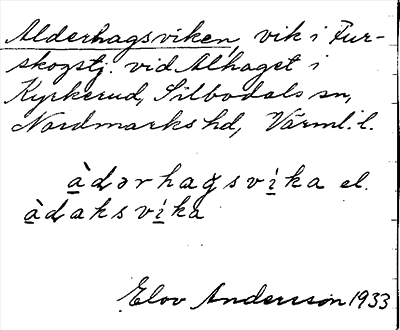 Alderhagsviken, vik i Fur-
skogstj. vid Alhaget i
Kyrkerud, Silbodals sn,
Nordmarks hd, Värml. l.
àdərhagsvika el.
àdaksvika
Elov Andersson 1933